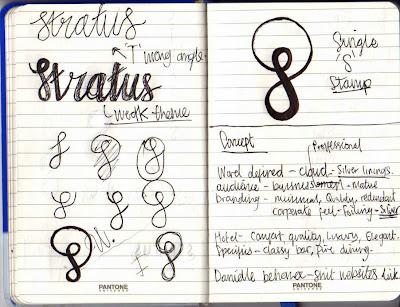 Stratus
'T' wrong angle
Stratus
work theme
S S S
S S S
S S
PANTONE
UNIVERSE
S
Single
'S'
Stamp
Concept
Professional
Word defined - cloud - Silver linings.
audience - business - mature
branding - minimal, Quality, redundant
corporate feel - Foiling - Silver
Hotel - Comfort quality, Luxury, Elegant.
Specifics - classy bar, fine dining.
Danielle behance - Shit websites link
PANTONE
UNIVERSE